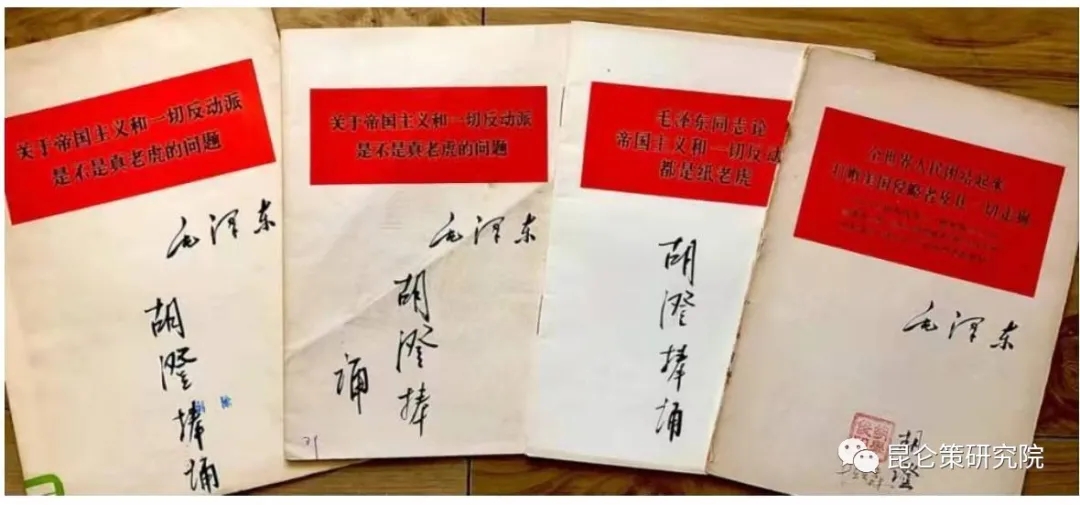 关于帝国主义和一切反动派
是不是真老虎的问题
毛泽东
胡澄捧诵
关于帝国主义和一切反动派
是不是真老虎的问题
毛泽东
胡澄捧
诵
毛泽东同志论
帝国主义和一切反动
都是纸老虎
胡澄捧诵
全世界人民团结起来
打败美国侵略者及其一切走狗
毛泽东
胡澄
昆仑策研究院